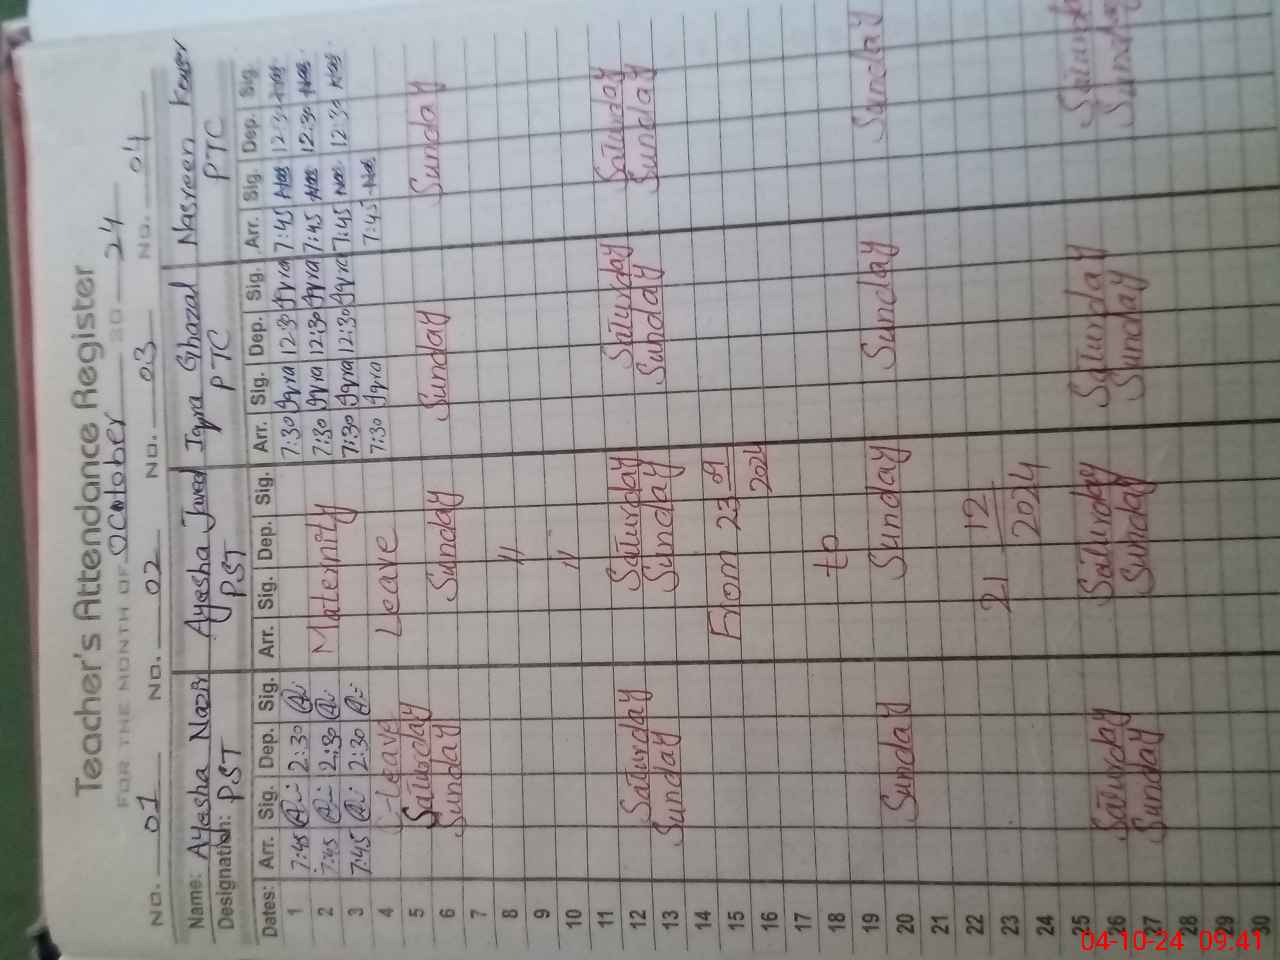 Teacher's Attendance Register
FOR THE MONTH OF October 20 24
NO. 01 NO. 02 NO. 03 NO. 04
Name: Ayesha Nazir Ayesha Javed Iqra Ghazal Nasreen Kouser
Designation: PST PST PTC PTC
Dates: Arr. Sig. Dep. Sig. Arr. Sig. Dep. Sig. Arr. Sig. Dep. Sig. Arr. Sig. Dep. Sig.
1 7:45 2:30 7:30 Iqra 12:30 Iqra 7:45 Nas. 12:30 Nas.
2 7:45 2:30 Maternity 7:30 Iqra 12:30 Iqra 7:45 Nas. 12:30 Nas.
3 7:45 2:30 7:30 Iqra 12:30 Iqra 7:45 Nas. 12:30 Nas.
4 Leave Leave 7:30 Iqra 7:45 Nas.
5 Saturday
6 Sunday Sunday Sunday Sunday
7
8 "
9
10 "
11
12 Saturday Saturday Saturday Saturday
13 Sunday Sunday Sunday Sunday
14
15 From 23 09
16 2024
17
18 to
19
20 Sunday Sunday Sunday Sunday
21
22 12
23 21
24 2024
25
26 Saturday Saturday Saturday Saturday
27 Sunday Sunday Sunday Sunday
28
29
30
04-10-24 09:41